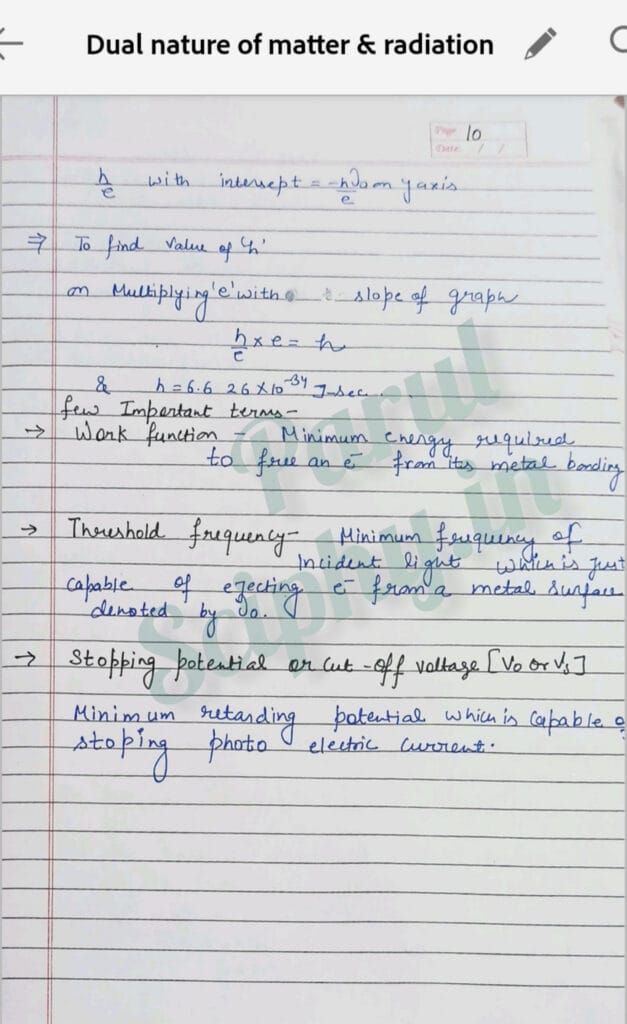 Dual nature of matter & radiation
Page 10
Date / /
h/e with intersept = -hν₀/e on y axis
⇒ To find value of 'h'
on Multiplying 'e' with slope of graph
h/e × e = h
& h = 6.626 × 10⁻³⁴ J-sec.
few Important terms-
→ Work function - Minimum energy required
to free an e⁻ from its metal bonding
→ Threshold frequency- Minimum frequency of
Incident light which is just
capable of ejecting e⁻ from a metal surface
denoted by ν₀.
→ Stopping potential or cut-off voltage [V₀ or Vₛ]
Minimum retarding potential which is capable o
stoping photo electric current.
Parul
Sciphy.in